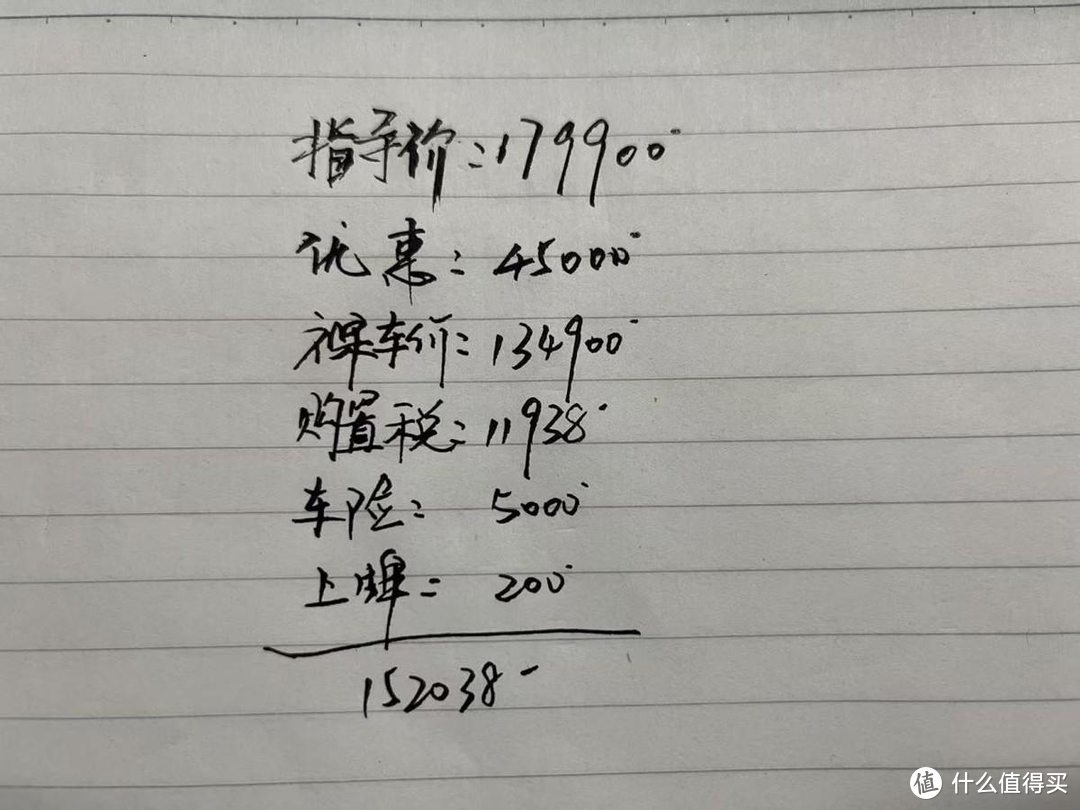 指导价：179900
优惠：45000
裸车价：134900
购置税：11938
车险：5000
上牌：200
152038
值 什么值得买